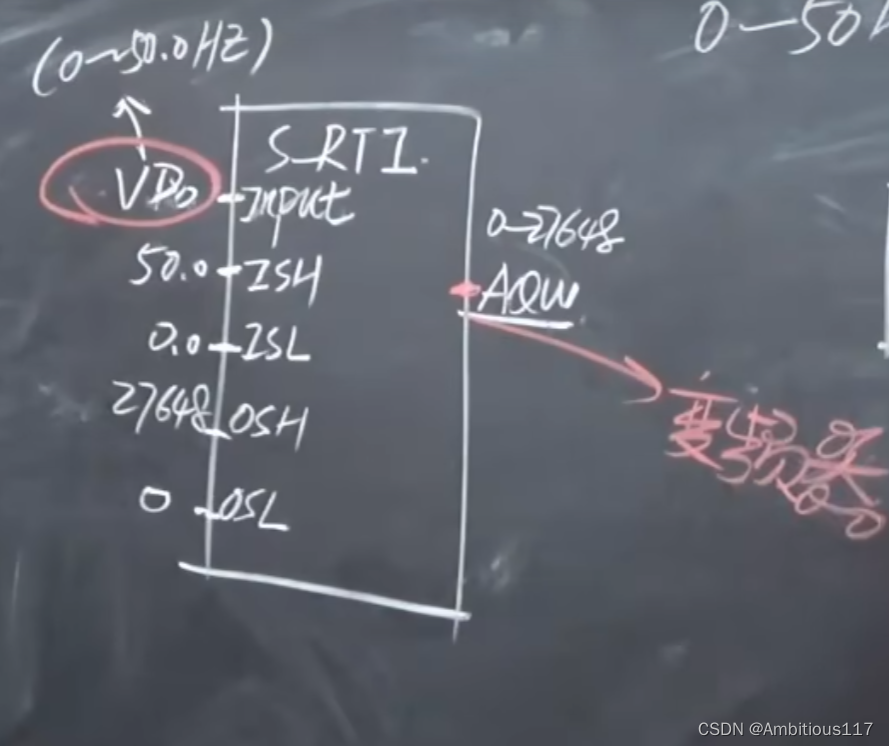 (0~50.0HZ)
0—50
S_RTI.
VD0
Input
0-27648
50.0
ISH
AQW
0.0
ISL
27648
OSH
变频器
0
OSL
CSDN @Ambitious117